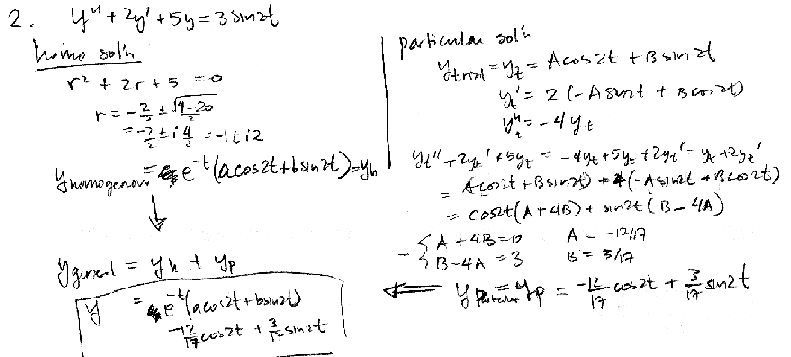 2. y'' + 2y' + 5y = 3 sin 2t
homo sol'n
r² + 2r + 5 = 0
r = -2/2 ± √(4-20)/2
= -2/2 ± i 4/2 = -1 ± i2
y homogenous = e^-t (a cos 2t + b sin 2t) = yh
↓
y general = yh + yp
y = e^-t (a cos 2t + b sin 2t)
-12/17 cos 2t + 3/17 sin 2t
particular sol'n
y trial = yt = A cos 2t + B sin 2t
yt' = 2 (-A sin 2t + B cos 2t)
yt'' = -4 yt
yt'' + 2yt' + 5yt = -4yt + 5yt + 2yt' = yt + 2yt'
= A cos 2t + B sin 2t + 4 (-A sin 2t + B cos 2t)
= cos 2t (A + 4B) + sin 2t (B - 4A)
{ A + 4B = 0 A = -12/17
{ B - 4A = 3 B = 3/17
⇐ y particular = yp = -12/17 cos 2t + 3/17 sin 2t